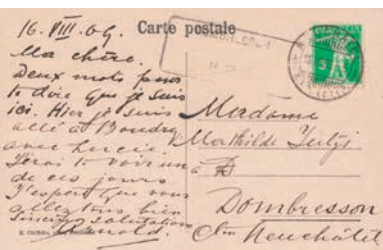 16. VIII. 09.
Carte postale
Ma chère.
Deux mots pour
te dire que je suis
ici. Hier je suis
allé à Boudry
avec
J'irai te voir un
de ces jours
J'espère que vous
allez tous bien
Sincères salutations
Arnold.
5
Madame
Mathilde
à
Dombresson
Ctn Neuchâtel